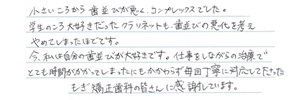 小さいころから歯並びが悪く、コンプレックスでした。
学生のころ大好きだったクラリネットも、歯並びの悪化を考え
やめてしまったほどです。
今、私は自分の歯並びが大好きです。仕事をしながらの治療で
とても時間がかかってしまったにもかかわらず毎回丁寧に対応してくださった
もぎ矯正歯科の皆さんに感謝しています。